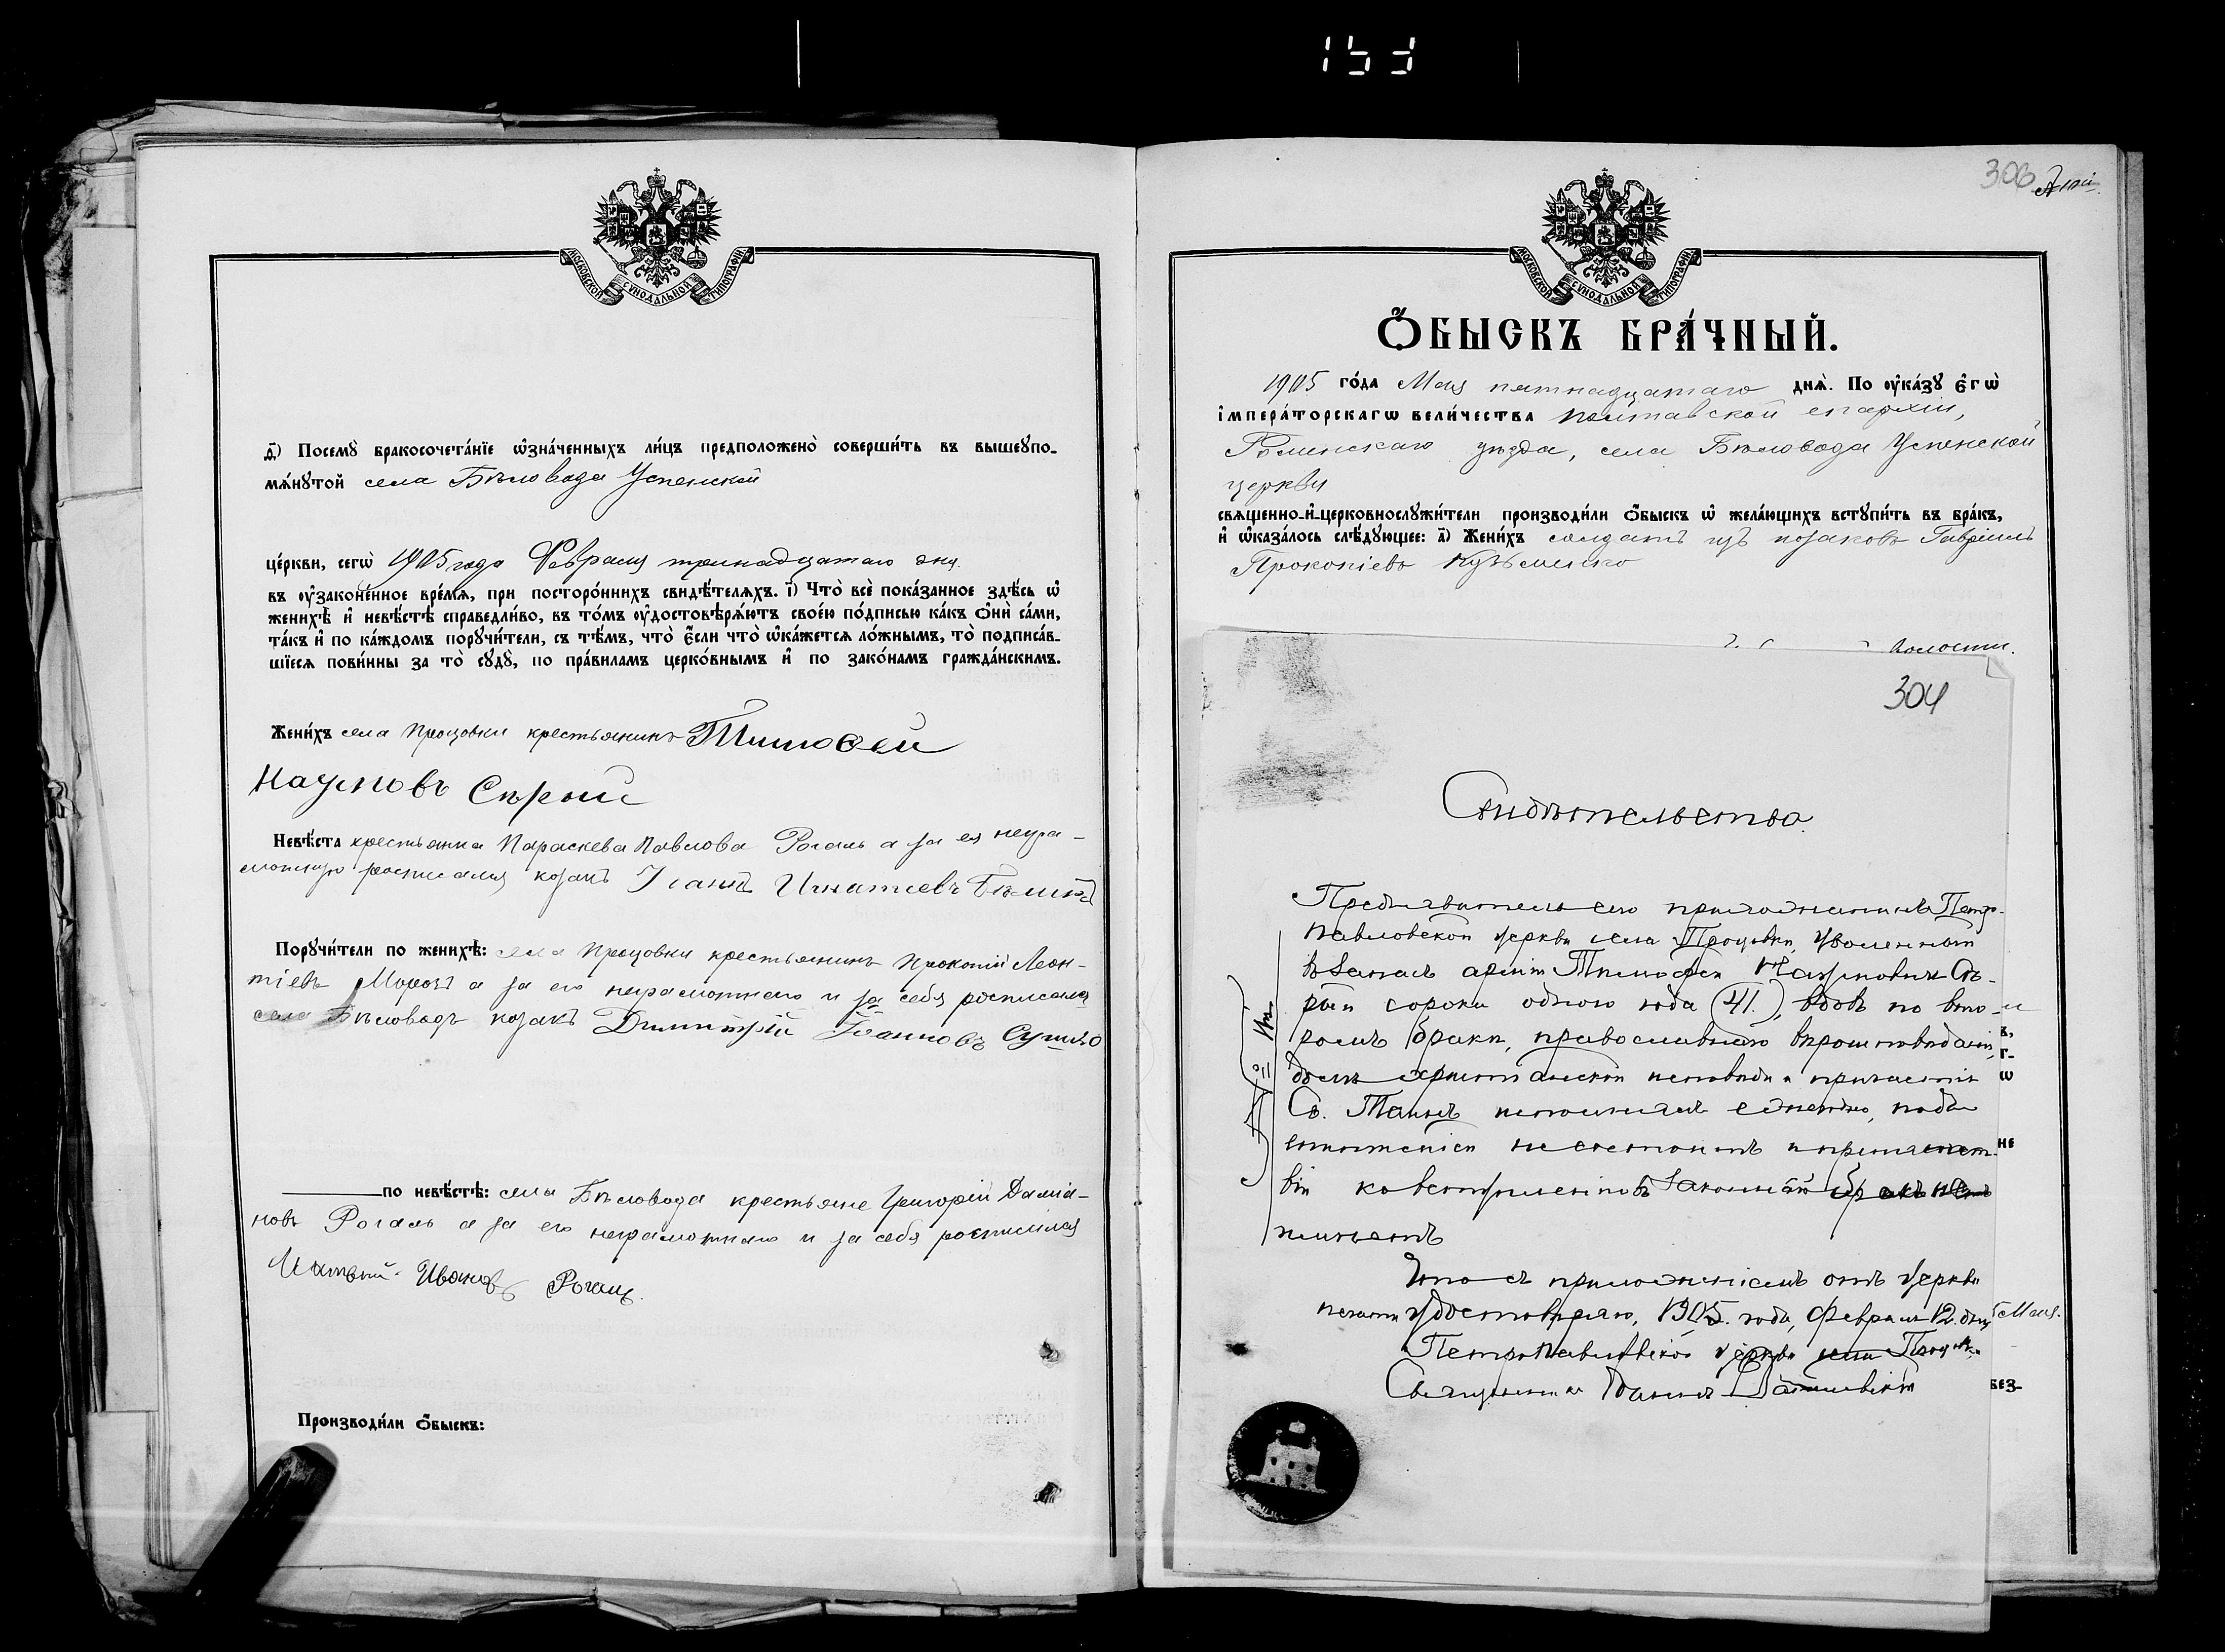 153
МОСКОВСКОЙ СѴНОДАЛЬНОЙ ТИПОГРАФІИ.
ѳ҃) Посемꙋ̀ бракосочета́нїе ѡ҆зна́ченныхъ ли́цъ предположено̀ соверши́ть въ вышеꙋпо-
мѧ́нꙋтой села Бѣловода Успенской
це́ркви, сегѡ̀ 1905 года Февраля тринадцатаго дня.
въ ᲂу҆зако́ненное вре́мѧ, при посторо́ннихъ свидѣ́телѧхъ. і҃) Что̀ всѐ пока́занное здѣ́сь ѡ҆
женихѣ̀ и҆ невѣ́стѣ справедли́во, въ то́мъ ᲂу҆достовѣрѧ́ютъ свое́ю по́дписью ка́къ ѻ҆нѝ са́ми,
та́къ и҆ по ка́ждомъ порꙋчи́тели, съ тѣ́мъ, что̀ є҆́сли что̀ ѡ҆ка́жется ло́жнымъ, то̀ подписа́в-
шїеся пови́нны за то̀ сꙋдꙋ̀, по пра́виламъ церко́внымъ и҆ по зако́намъ гражда́нскимъ.
Жени́хъ села Процовки крестьянинъ Тимоѳей
Наумовъ Сѣрый
Невѣ́ста крестьянка Параскева Павлова Рогаль а за ея негра-
мотную росписался козакъ Іоаннъ Игнатіевъ
Порꙋчи́тели по женихѣ̀: села Процовки крестьянинъ Прокопій Леон-
тіевъ Морозъ а за его неграмотнаго и за себя росписался
села Бѣловодъ козакъ Димитрій Іоанновъ Сушко
по невѣ́стѣ: села Бѣловода крестьяне Григорій Даміа-
новъ Рогаль а за его неграмотнаго и за себя росписался
Ивановъ Рогаль.
Производи́ли ѻ҆́быскъ:
303
МОСКОВСКОЙ СѴНОДАЛЬНОЙ ТИПОГРАФІИ.
Ѻ҆́БЫСКЪ БРА́ЧНЫЙ.
1905 го́да Мая пятнадцатаго днѧ̀. По ᲂу҆ка́зꙋ є҆гѡ̀
і҆мпера́торскагѡ вели́чества Полтавской епархіи,
Роменскаго уѣзда, села Бѣловода Успенской
церкви
свѧщенно-и҆-церковнослꙋжи́тели производи́ли ѻ҆́быскъ ѡ҆ жела́ющихъ встꙋпи́ть въ бра́къ,
и҆ ѡ҆каза́лось слѣ́дꙋющее: а҃) Жени́хъ солдатъ изъ козаковъ Гавріилъ
Прокопіевъ Кузьменко
волости.
304
Свидѣтельство.
Предъявитель сего прихожанинъ Петро-
Павловской церкви села Процовки, уволенный
въ запасъ арміи Тимоѳей Наумовичъ Сѣ-
рый сорока одного года (41.), вдовъ по вто-
ромъ бракѣ, православнаго вѣроисповѣданія,
долгъ христіанскій исповѣди и причастія
Св. Таинъ исполнялъ ежегодно, подъ
не состоитъ и препятст-
вій ко вступленію въ законный бракъ не
имѣетъ
Что съ приложеніемъ отъ церкви
печати удостовѣряю, 1905. года, Февраля 12. дня
Петропавловской церкви села Процовки
Священникъ
Мая.
в,
г-
ѡ
не
без-